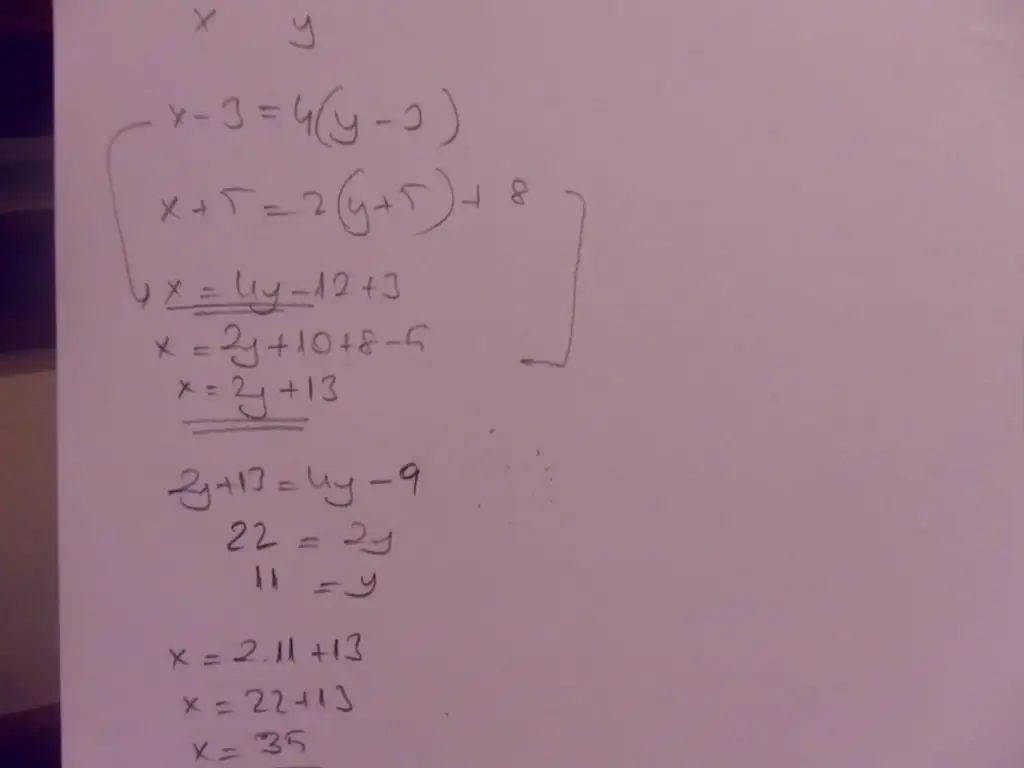 x y
x - 3 = 4(y - 3)
x + 5 = 2(y + 5) + 8
x = 4y - 12 + 3
x = 2y + 10 + 8 - 5
x = 2y + 13
2y + 13 = 4y - 9
22 = 2y
11 = y
x = 2.11 + 13
x = 22 + 13
x = 35